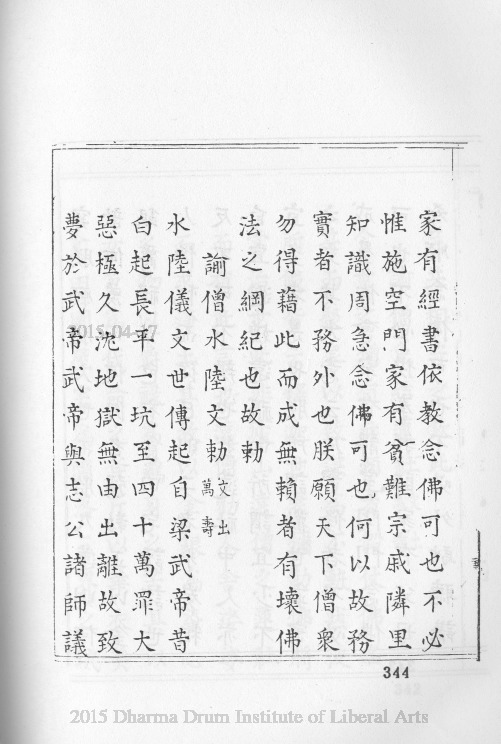 家有經書依教念佛可也不必
惟施空門家有貧難宗戚隣里
知識周急念佛可也何以故務
實者不務外也朕願天下僧衆
勿得藉此而成無賴者有壞佛
法之綱紀也故勅
諭僧水陸文勅 文出萬壽
水陸儀文世傳起自梁武帝昔
白起長平一坑至四十萬罪大
惡極久沈地獄無由出離故致
夢於武帝武帝與志公諸師議
344
2015-04-17
2015 Dharma Drum Institute of Liberal Arts